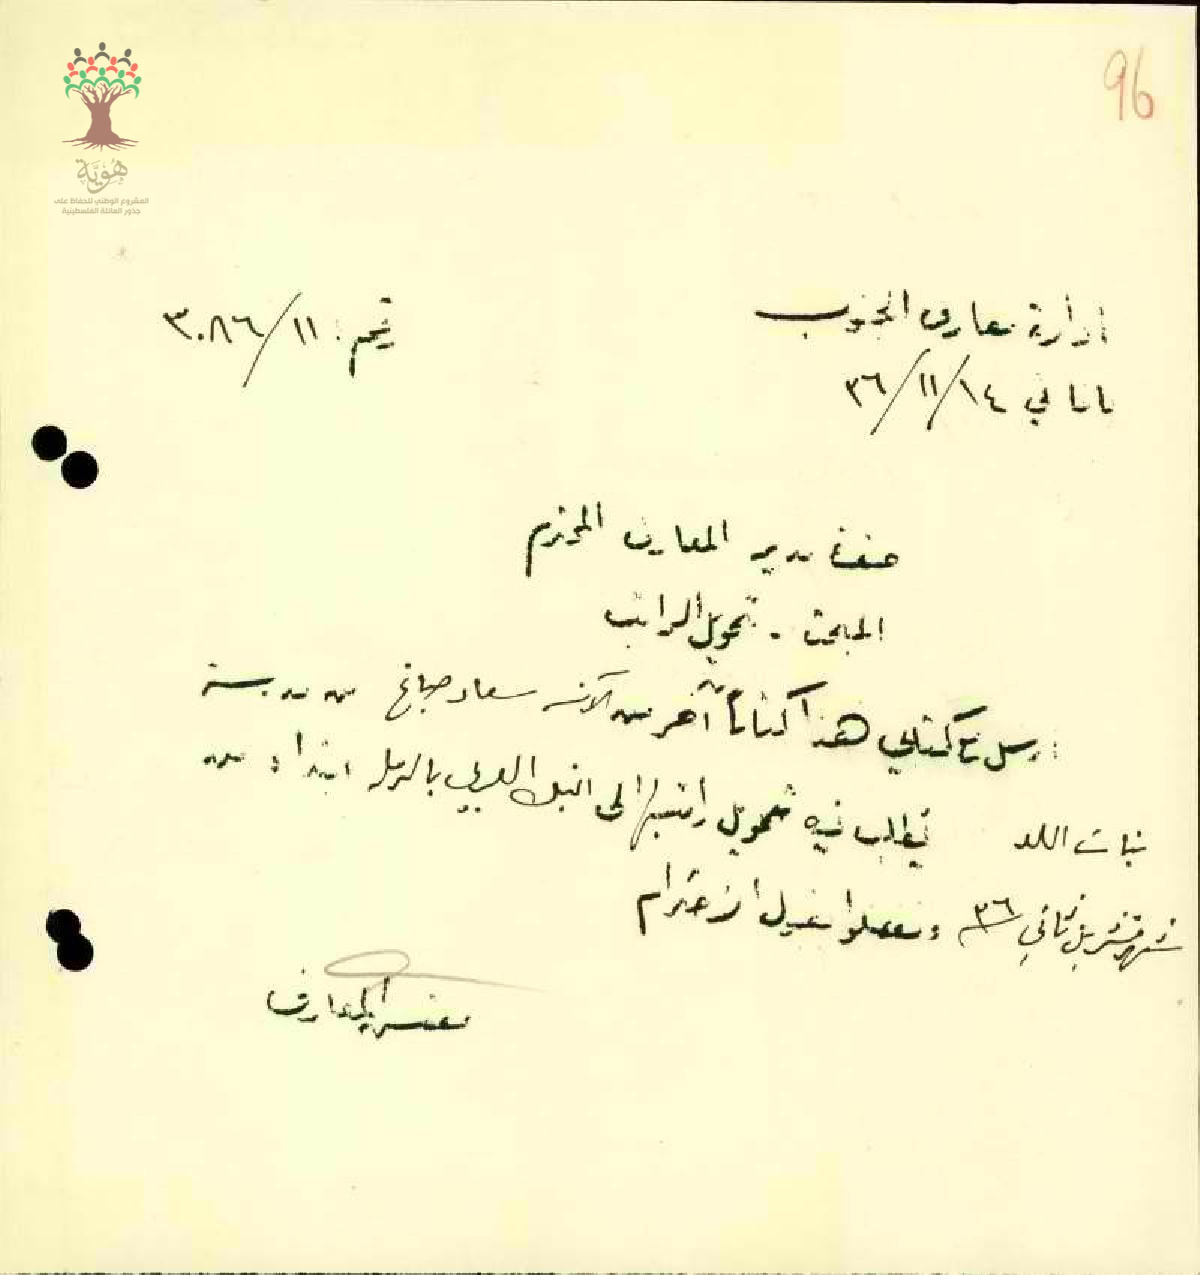 96
هُوِيَّة
المشروع الوطني للحفاظ على
جذور العائلة الفلسطينية
ادارة معارف الجنوب
رقم : ١١/٣٠٨٦
يافا في ١٤/١١/٣٦
حضرة مدير المعارف المحترم
المبحث - تحويل الراتب
ارسل مع كتابي هذا كتاباً آخر من الآنسه سعاد صباغ من مدرسة
بنات اللد تطلب فيه تحويل راتبها الى البنك العربي بالرمله ابتداء من
شهر تشرين ثاني ٣٦ وتفضلوا بقبول الاحترام
مفتش المعارف